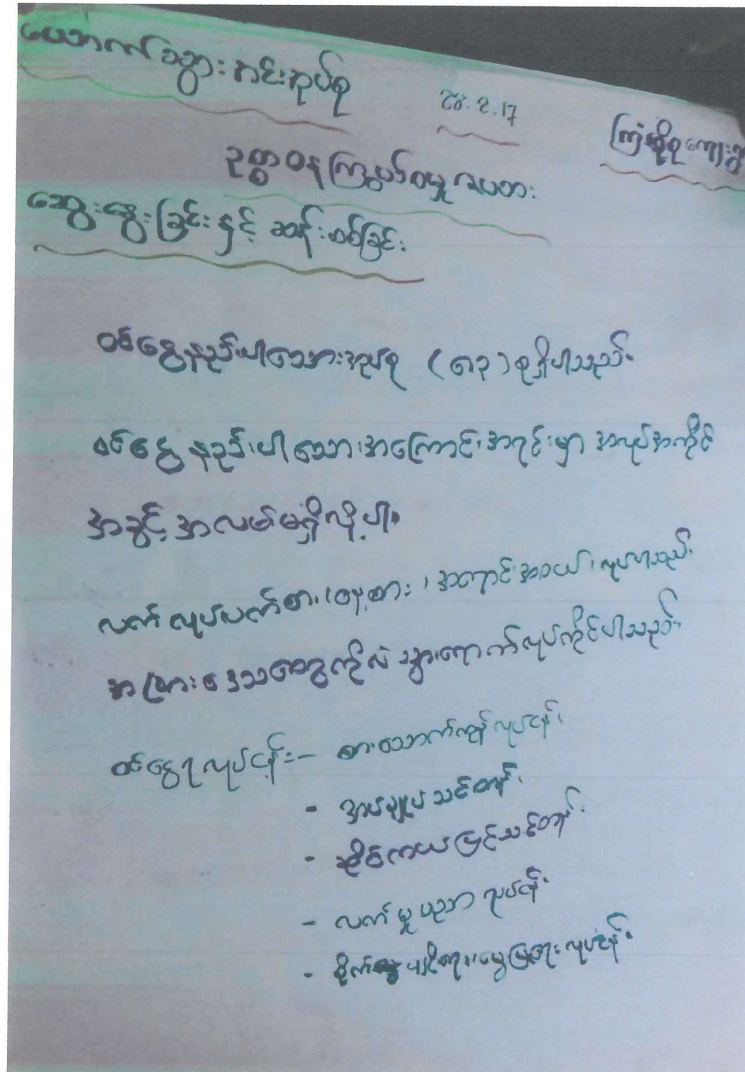 ယောက်သွားအင်းအုပ်စု
28.2.17
ကြံဆိုစုကျေးရွာ
ဥစ္စာဓနကြွယ်ဝမှုဇယား
ဆွေးနွေးခြင်းနှင့် ဆန်းစစ်ခြင်း
ဝင်ငွေနည်းပါးသောအုပ်စု (၈၃) စုရှိပါသည်။
ဝင်ငွေ နည်းပါးသောအကြောင်းအရင်းမှာ အလုပ်အကိုင်
အခွင့်အလမ်းမရှိလို့ပါ။
လက်လုပ်လက်စား၊ အကြောင်းအဝယ်၊ လုပ်ပါသည်။
အခြားဒေသတွေကိုလဲ သွားရောက်လုပ်ကိုင်ပါသည်။
ဝင်ငွေရလုပ်ငန်း - စားသောက်ကုန်လုပ်ငန်း၊
- အပ်ချုပ်သင်တန်း၊
- ဆိုင်ကယ်ပြင်သင်တန်း
- လက်မှုပညာလုပ်ငန်း
- စိုက်ပျိုးရေး၊ မွေးမြူရေးလုပ်ငန်း